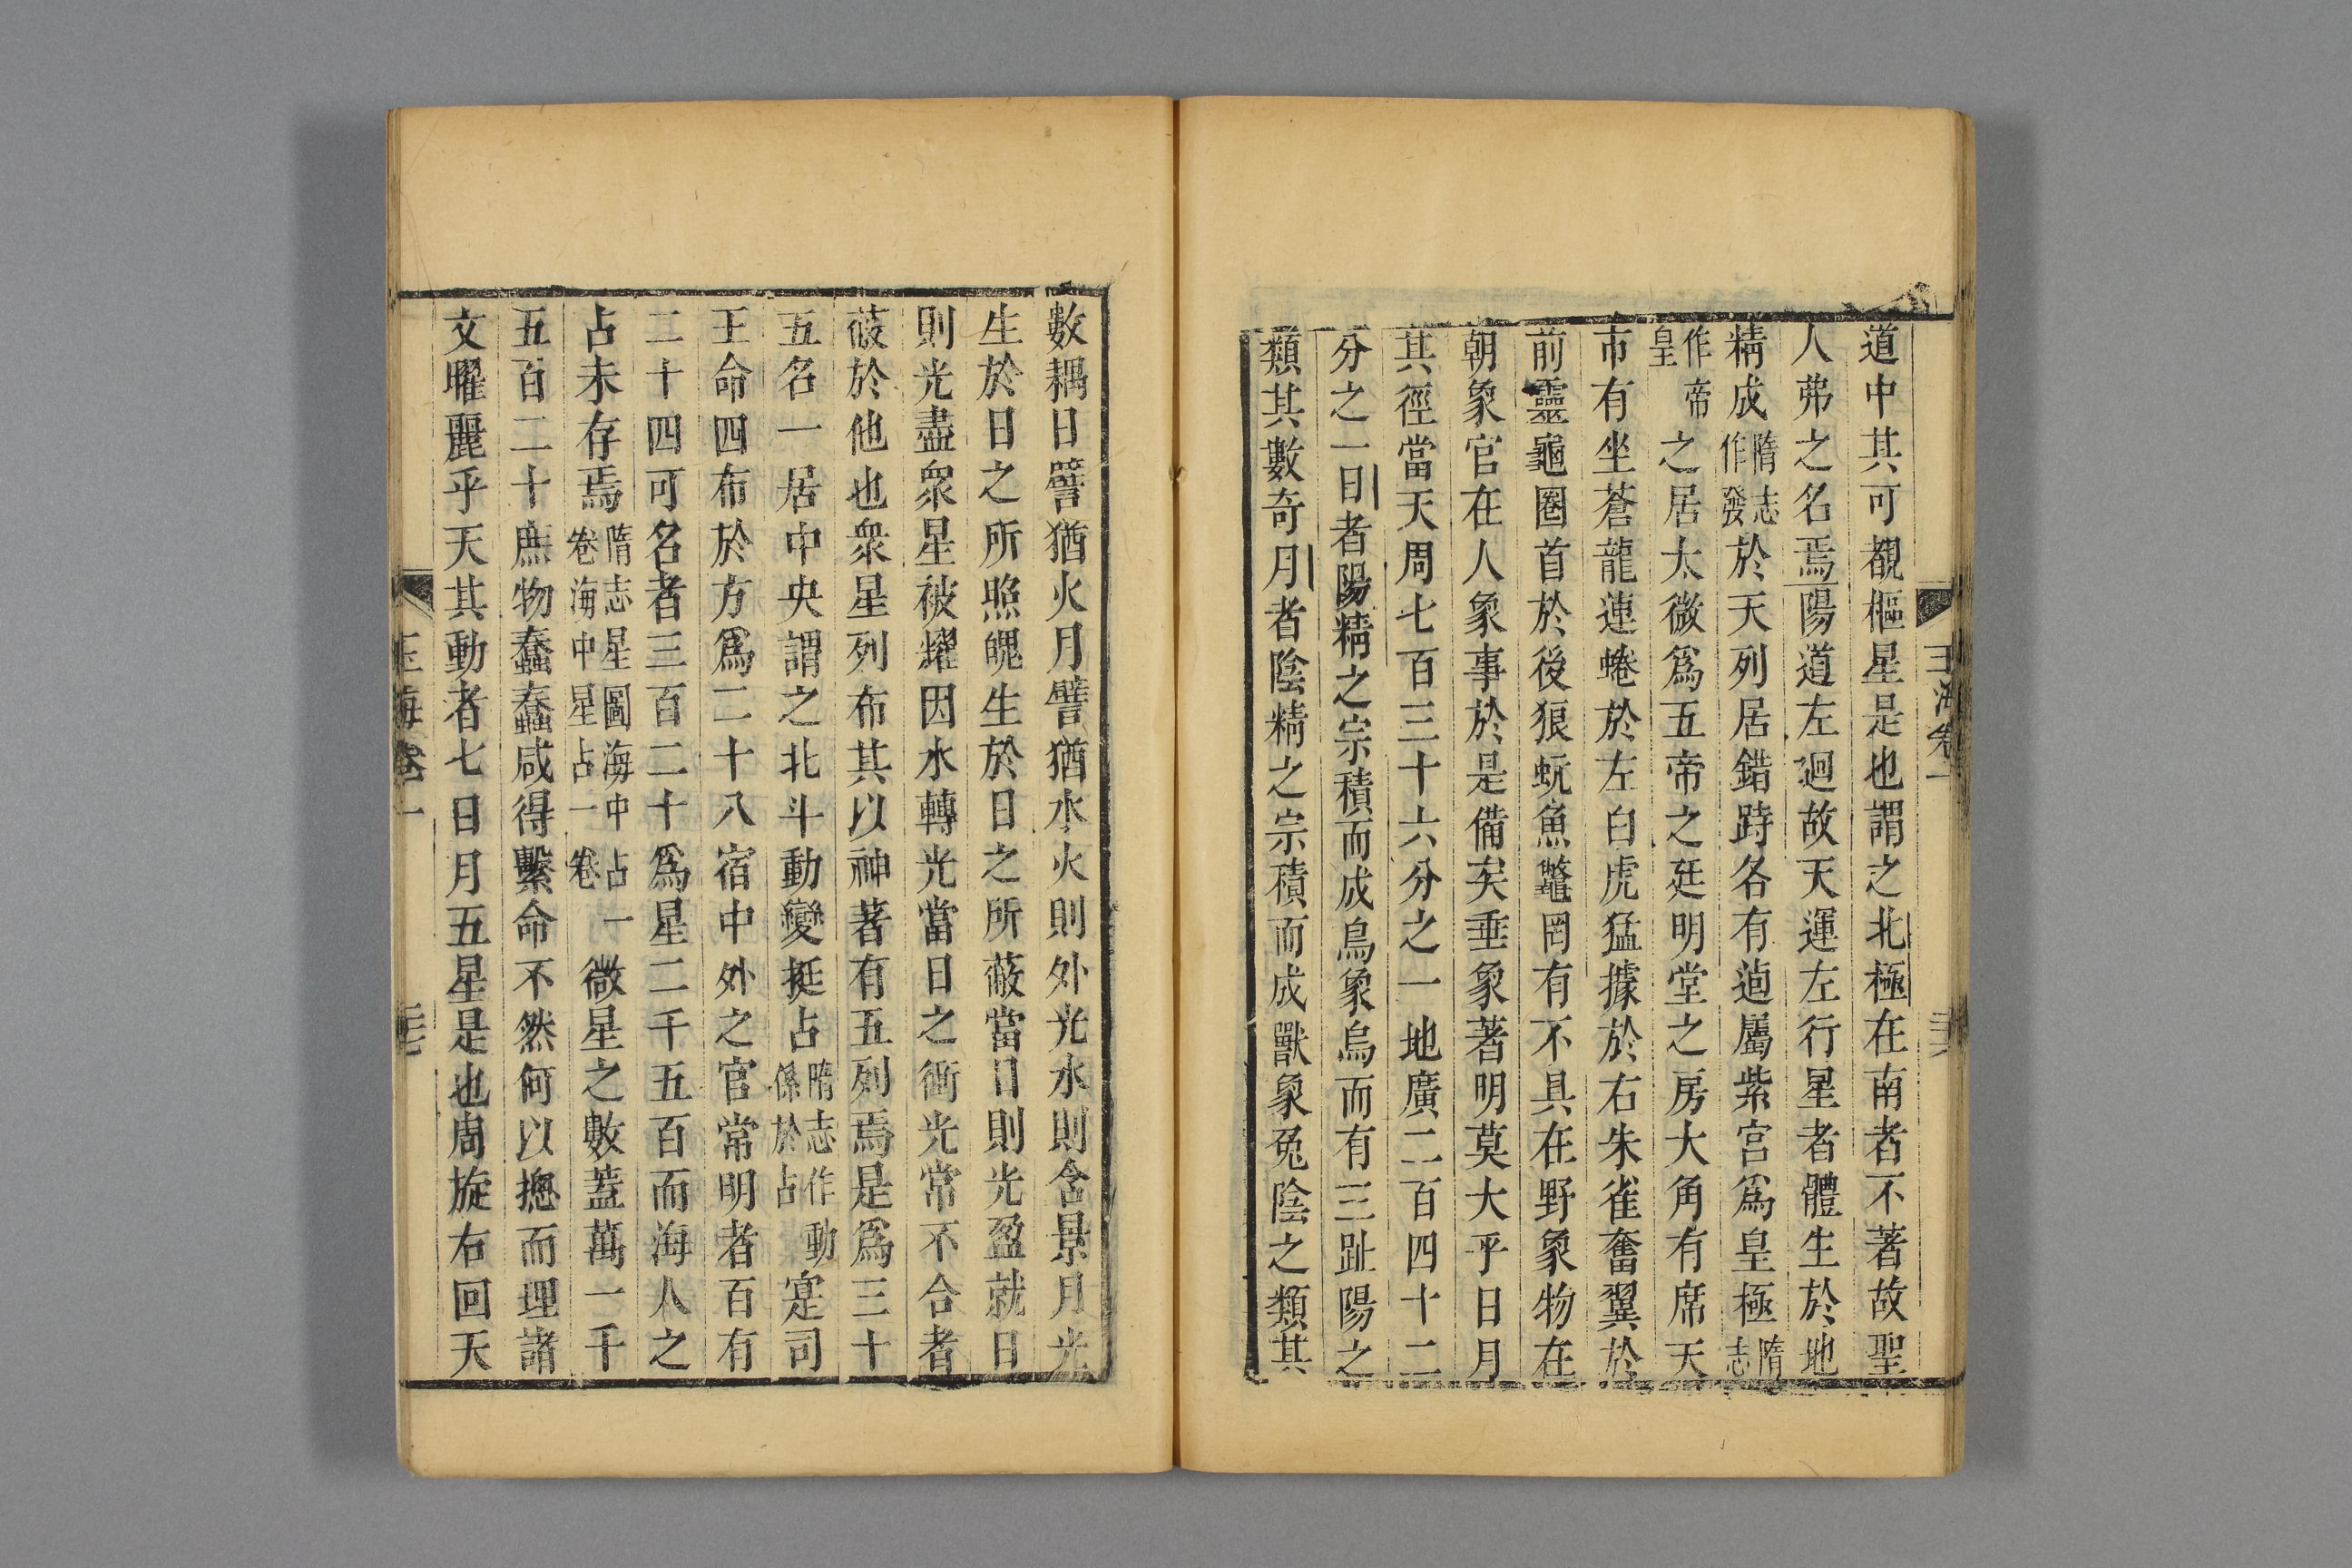 道中其可覩樞星是也謂之北極在南者不著故聖
人弗之名焉陽道左迴故天運左行星者體生於地
精成隋志作發於天列居錯跱各有逌屬紫宮爲皇極隋志
作帝皇之居太微爲五帝之廷明堂之房大角有席天
市有坐蒼龍連蜷於左白虎猛據於右朱雀奮翼於
前靈龜圈首於後狼蚖魚鼈罔有不具在野象物在
朝象官在人象事於是備矣垂象著明莫大乎日月
其徑當天周七百三十六分之一地廣二百四十二
分之一日者陽精之宗積而成鳥象烏而有三趾陽之
類其數奇月者陰精之宗積而成獸象兔陰之類其
玉海卷一
數耦日譬猶火月譬猶水火則外光水則含景月光
生於日之所照魄生於日之所蔽當日則光盈就日
則光盡衆星被燿因水轉光當日之衝光常不合者
蔽於他也衆星列布其以神著有五列焉是爲三十
五名一居中央謂之北斗動變挺占隋志作動係於占寔司
王命四布於方爲二十八宿中外之官常明者百有
二十四可名者三百二十爲星二千五百而海人之
占未存焉隋志星圖海中占一卷海中星占一卷微星之數蓋萬一千
五百二十庶物蠢蠢咸得繫命不然何以摠而理諸
文曜麗乎天其動者七日月五星是也周旋右回天
玉海卷一